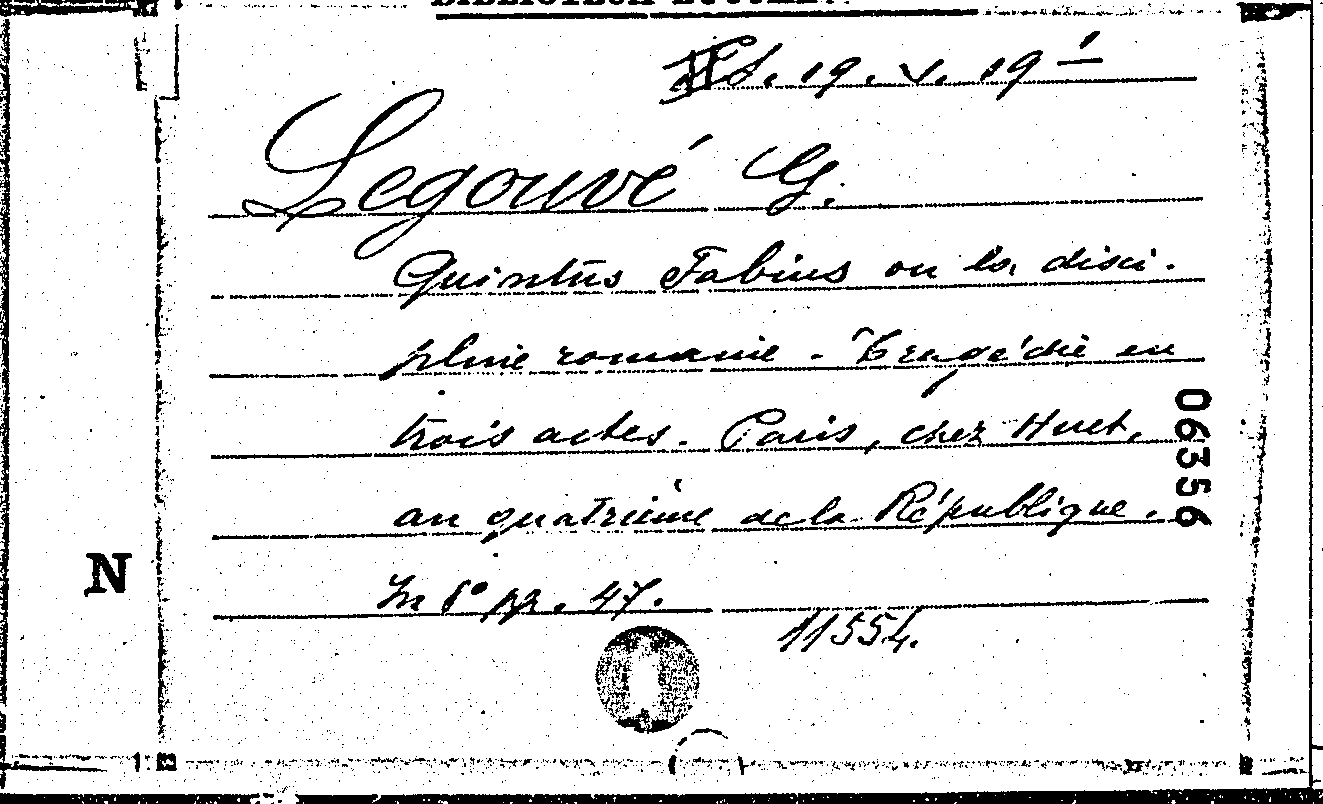 S. 19. V. 19
Legouvé G.
Quintus Fabius ou la disci.
pline romaine - Tragédie en
trois actes. Paris, chez Huet,
an quatrième de la République.
In 8° pp. 47.
11554.
06356
N